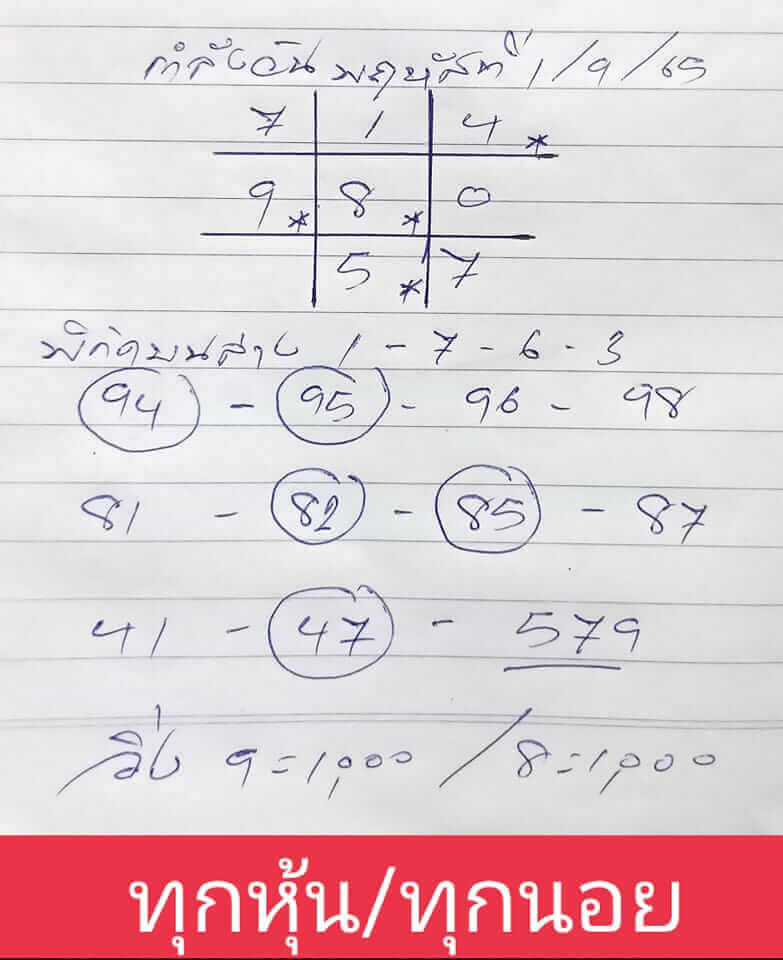 กำลังวัน พฤหัสที่ 1/9/65
7 1 4*
9* 8* 0
5* 7
พิกัดบนล่าง 1-7-6-3
94 - 95 - 96 - 98
81 - 82 - 85 - 87
41 - 47 - 579
วิ่ง 9=1,000 / 8=1,000
ทุกหุ้น/ทุกนอย